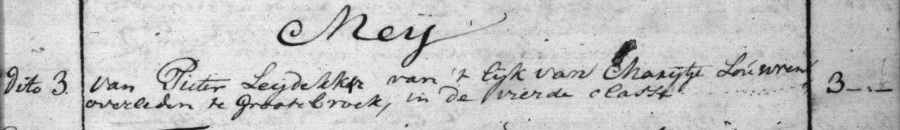 Meij
dito 3 van Pieter Leijdekker van 't lijk van Marijtje Louwren 3 –.–
overleden te Grootebroek, in de vierde classe